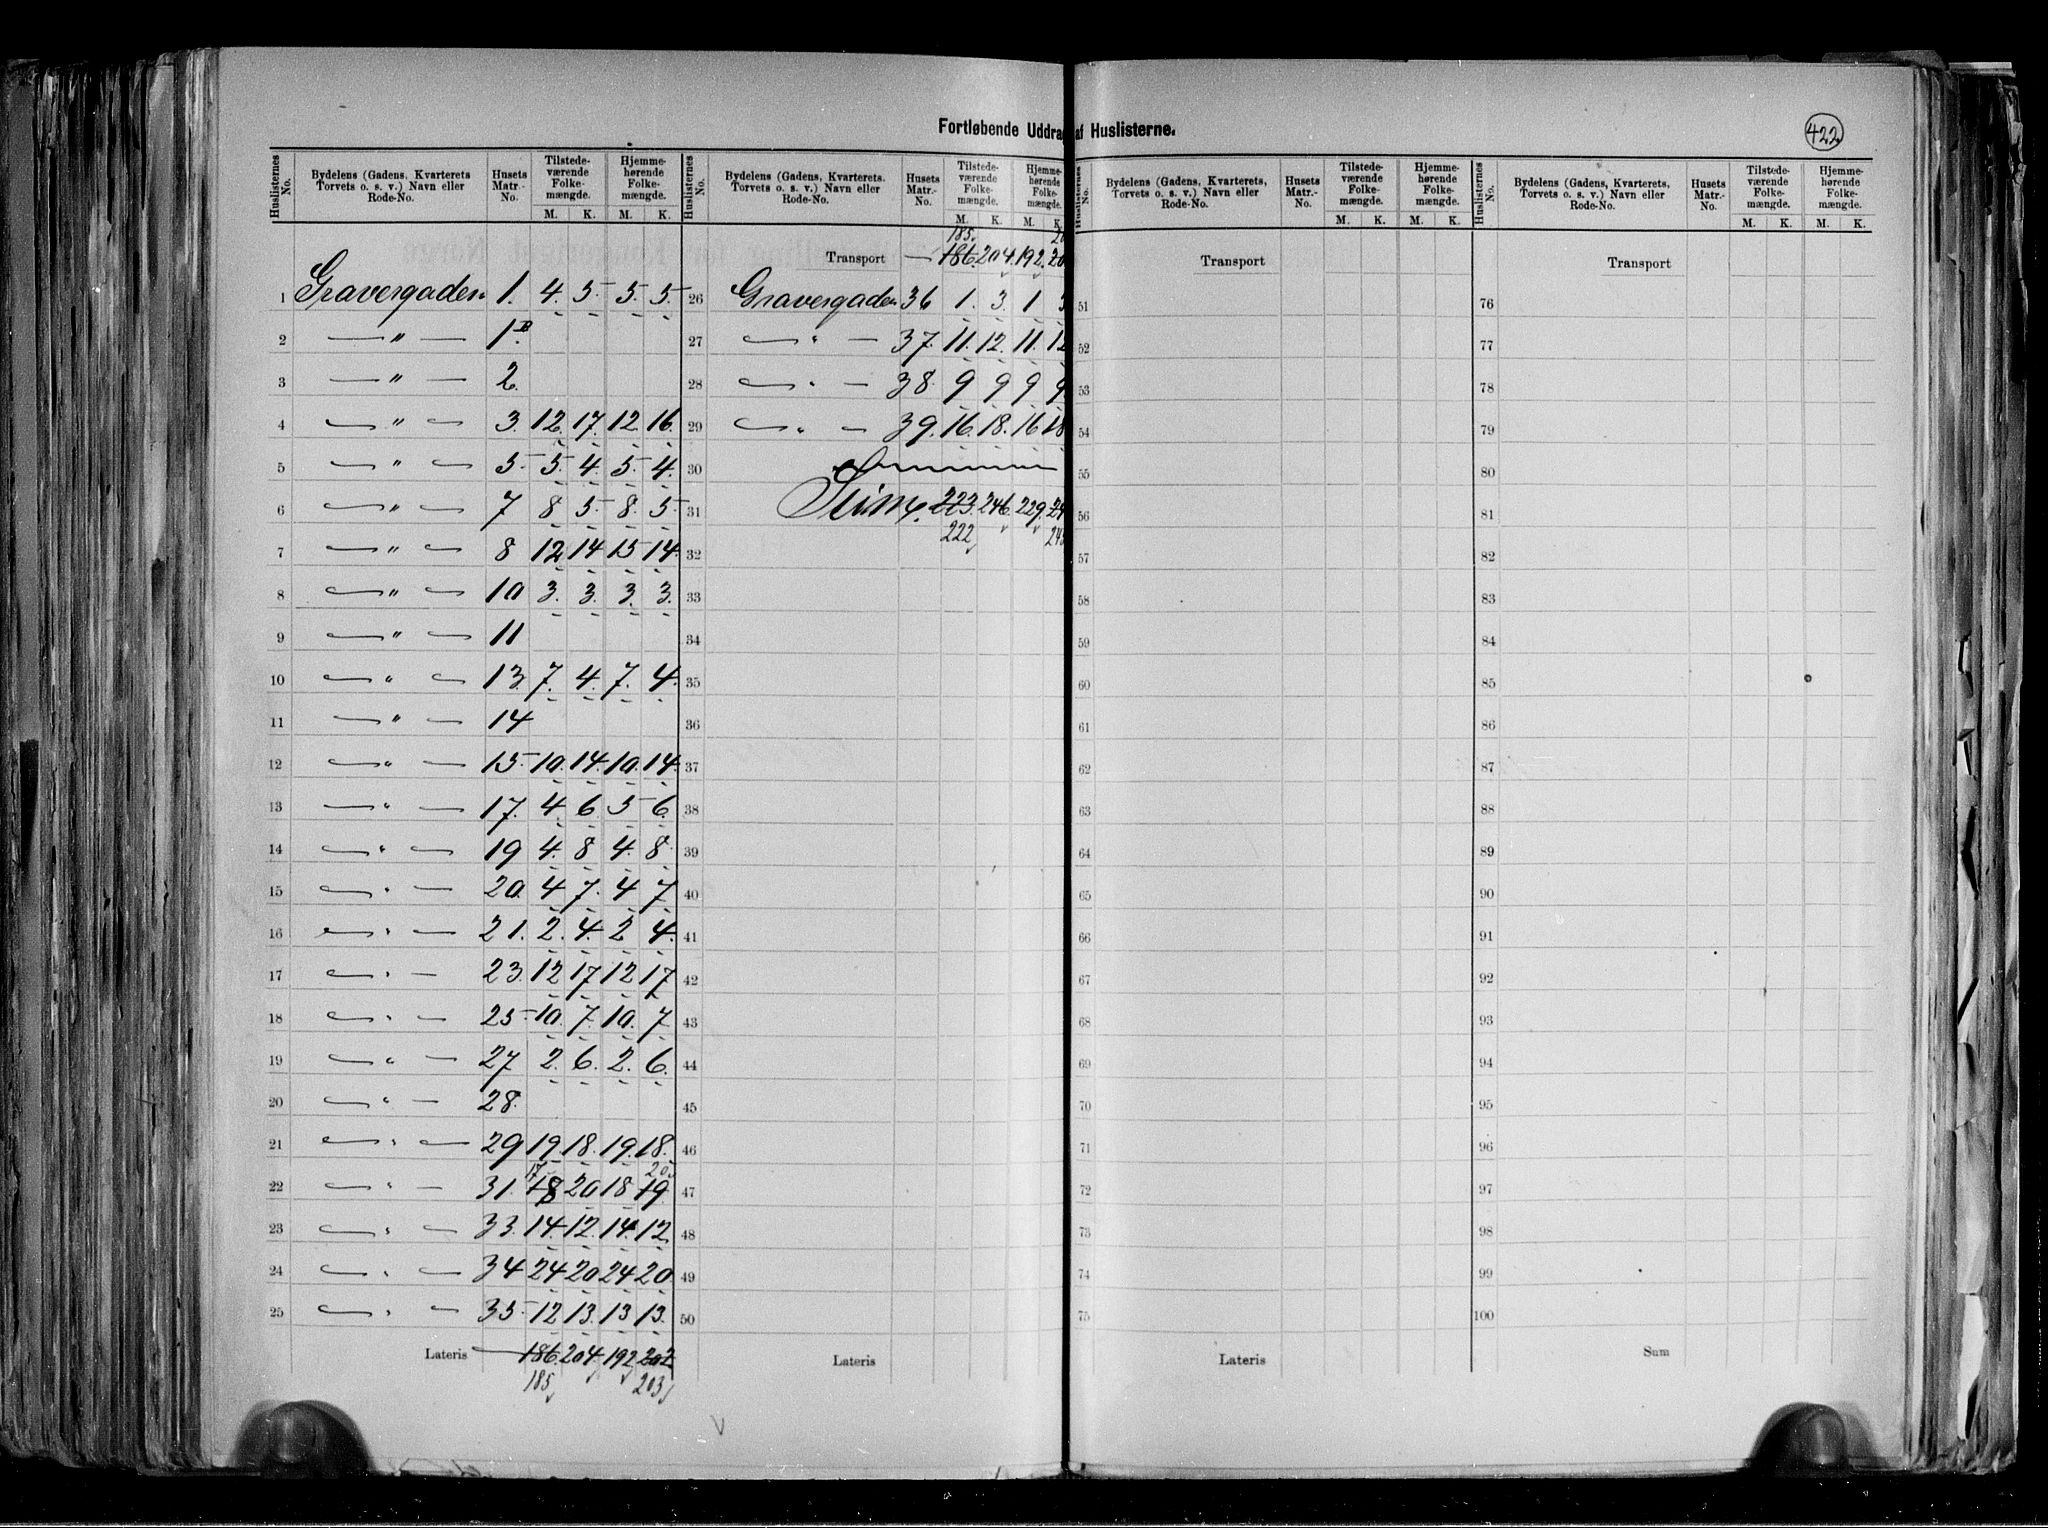 Fortløbende Uddrag af Huslisterne.
422
Huslisternes No. Bydelens (Gadens, Kvarterets Torvets o. s. v.) Navn eller Rode-No. Husets Matr.-No. Tilstedeværende Folkemængde. M. K. Hjemmehørende Folkemængde. M. K.
1 Gravergaden 1. 4. 5 5. 5.
2 — " — 1B
3 — " — 2.
4 — " — 3. 12. 17. 12. 16.
5 — " — 5 5. 4. 5 4.
6 — " — 7 8 5 8. 5
7 — " — 8 12 14 15 14.
8 — " — 10 3. 3. 3. 3.
9 — " — 11
10 — " — 13. 7. 4. 7. 4.
11 — " — 14
12 — " — 15 10. 14. 10. 14.
13 — " — 17. 4. 6 5 6.
14 — " — 19 4. 8 4. 8
15 — " — 20. 4 7. 4 7
16 — " — 21. 2. 4. 2 4.
17 — " — 23. 12 17 12 17
18 — " — 25 10. 7. 10. 7
19 — " — 27 2. 6. 2. 6.
20 — " — 28.
21 — " — 29 19. 18. 19. 18.
17 20
22 — " — 31. 18 20 18 19
23 — " — 33. 14. 12. 14. 12
24 — " — 34 24 20 24 20
25 — " — 35 12 13. 13 13.
Lateris 186 204 192 202
185 203
Huslisternes No. Bydelens (Gadens, Kvarterets, Torvets o. s. v.) Navn eller Rode-No. Husets Matr.-No. Tilstedeværende Folkemængde. M. K. Hjemmehørende Folkemængde. M. K.
185.
Transport — 186. 204. 192.
26 Gravergaden 36 1. 3. 1 3
27 — " — 37. 11. 12. 11. 12
28 — " — 38. 9 9 9 9
29 — " — 39. 16. 18. 16 18
30
31 Sum 223. 246. 229.
222
32
33
34
35
36
37
38
39
40
41
42
43
44
45
46
47
48
49
50
Lateris
Huslisternes No. Bydelens (Gadens, Kvarterets, Torvets o. s. v.) Navn eller Rode-No. Husets Matr.-No. Tilstedeværende Folkemængde. M. K. Hjemmehørende Folkemængde. M. K.
Transport
51
52
53
54
55
56
57
58
59
60
61
62
63
64
65
66
67
68
69
70
71
72
73
74
75
Lateris
Huslisternes No. Bydelens (Gadens, Kvarterets, Torvets o. s. v.) Navn eller Rode-No. Husets Matr.-No. Tilstedeværende Folkemængde. M. K. Hjemmehørende Folkemængde. M. K.
Transport
76
77
78
79
80
81
82
83
84
85
86
87
88
89
90
91
92
93
94
95
96
97
98
99
100
Sum